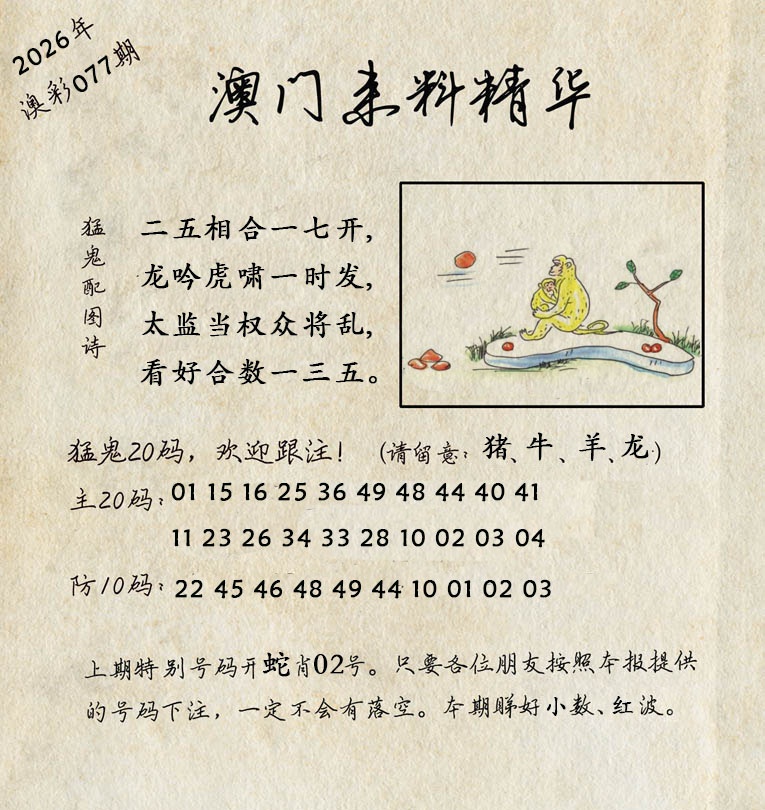 2026年
澳彩077期
澳门来料精华
猛鬼配图诗
二五相合一七开,
龙吟虎啸一时发,
太监当权众将乱,
看好合数一三五。
猛鬼20码，欢迎跟注！（请留意：猪、牛、羊、龙）
主20码：01 15 16 25 36 49 48 44 40 41
11 23 26 34 33 28 10 02 03 04
防10码：22 45 46 48 49 44 10 01 02 03
上期特别号码开蛇肖02号。只要各位朋友按照本报提供
的号码下注，一定不会有落空。本期睇好小数、红波。